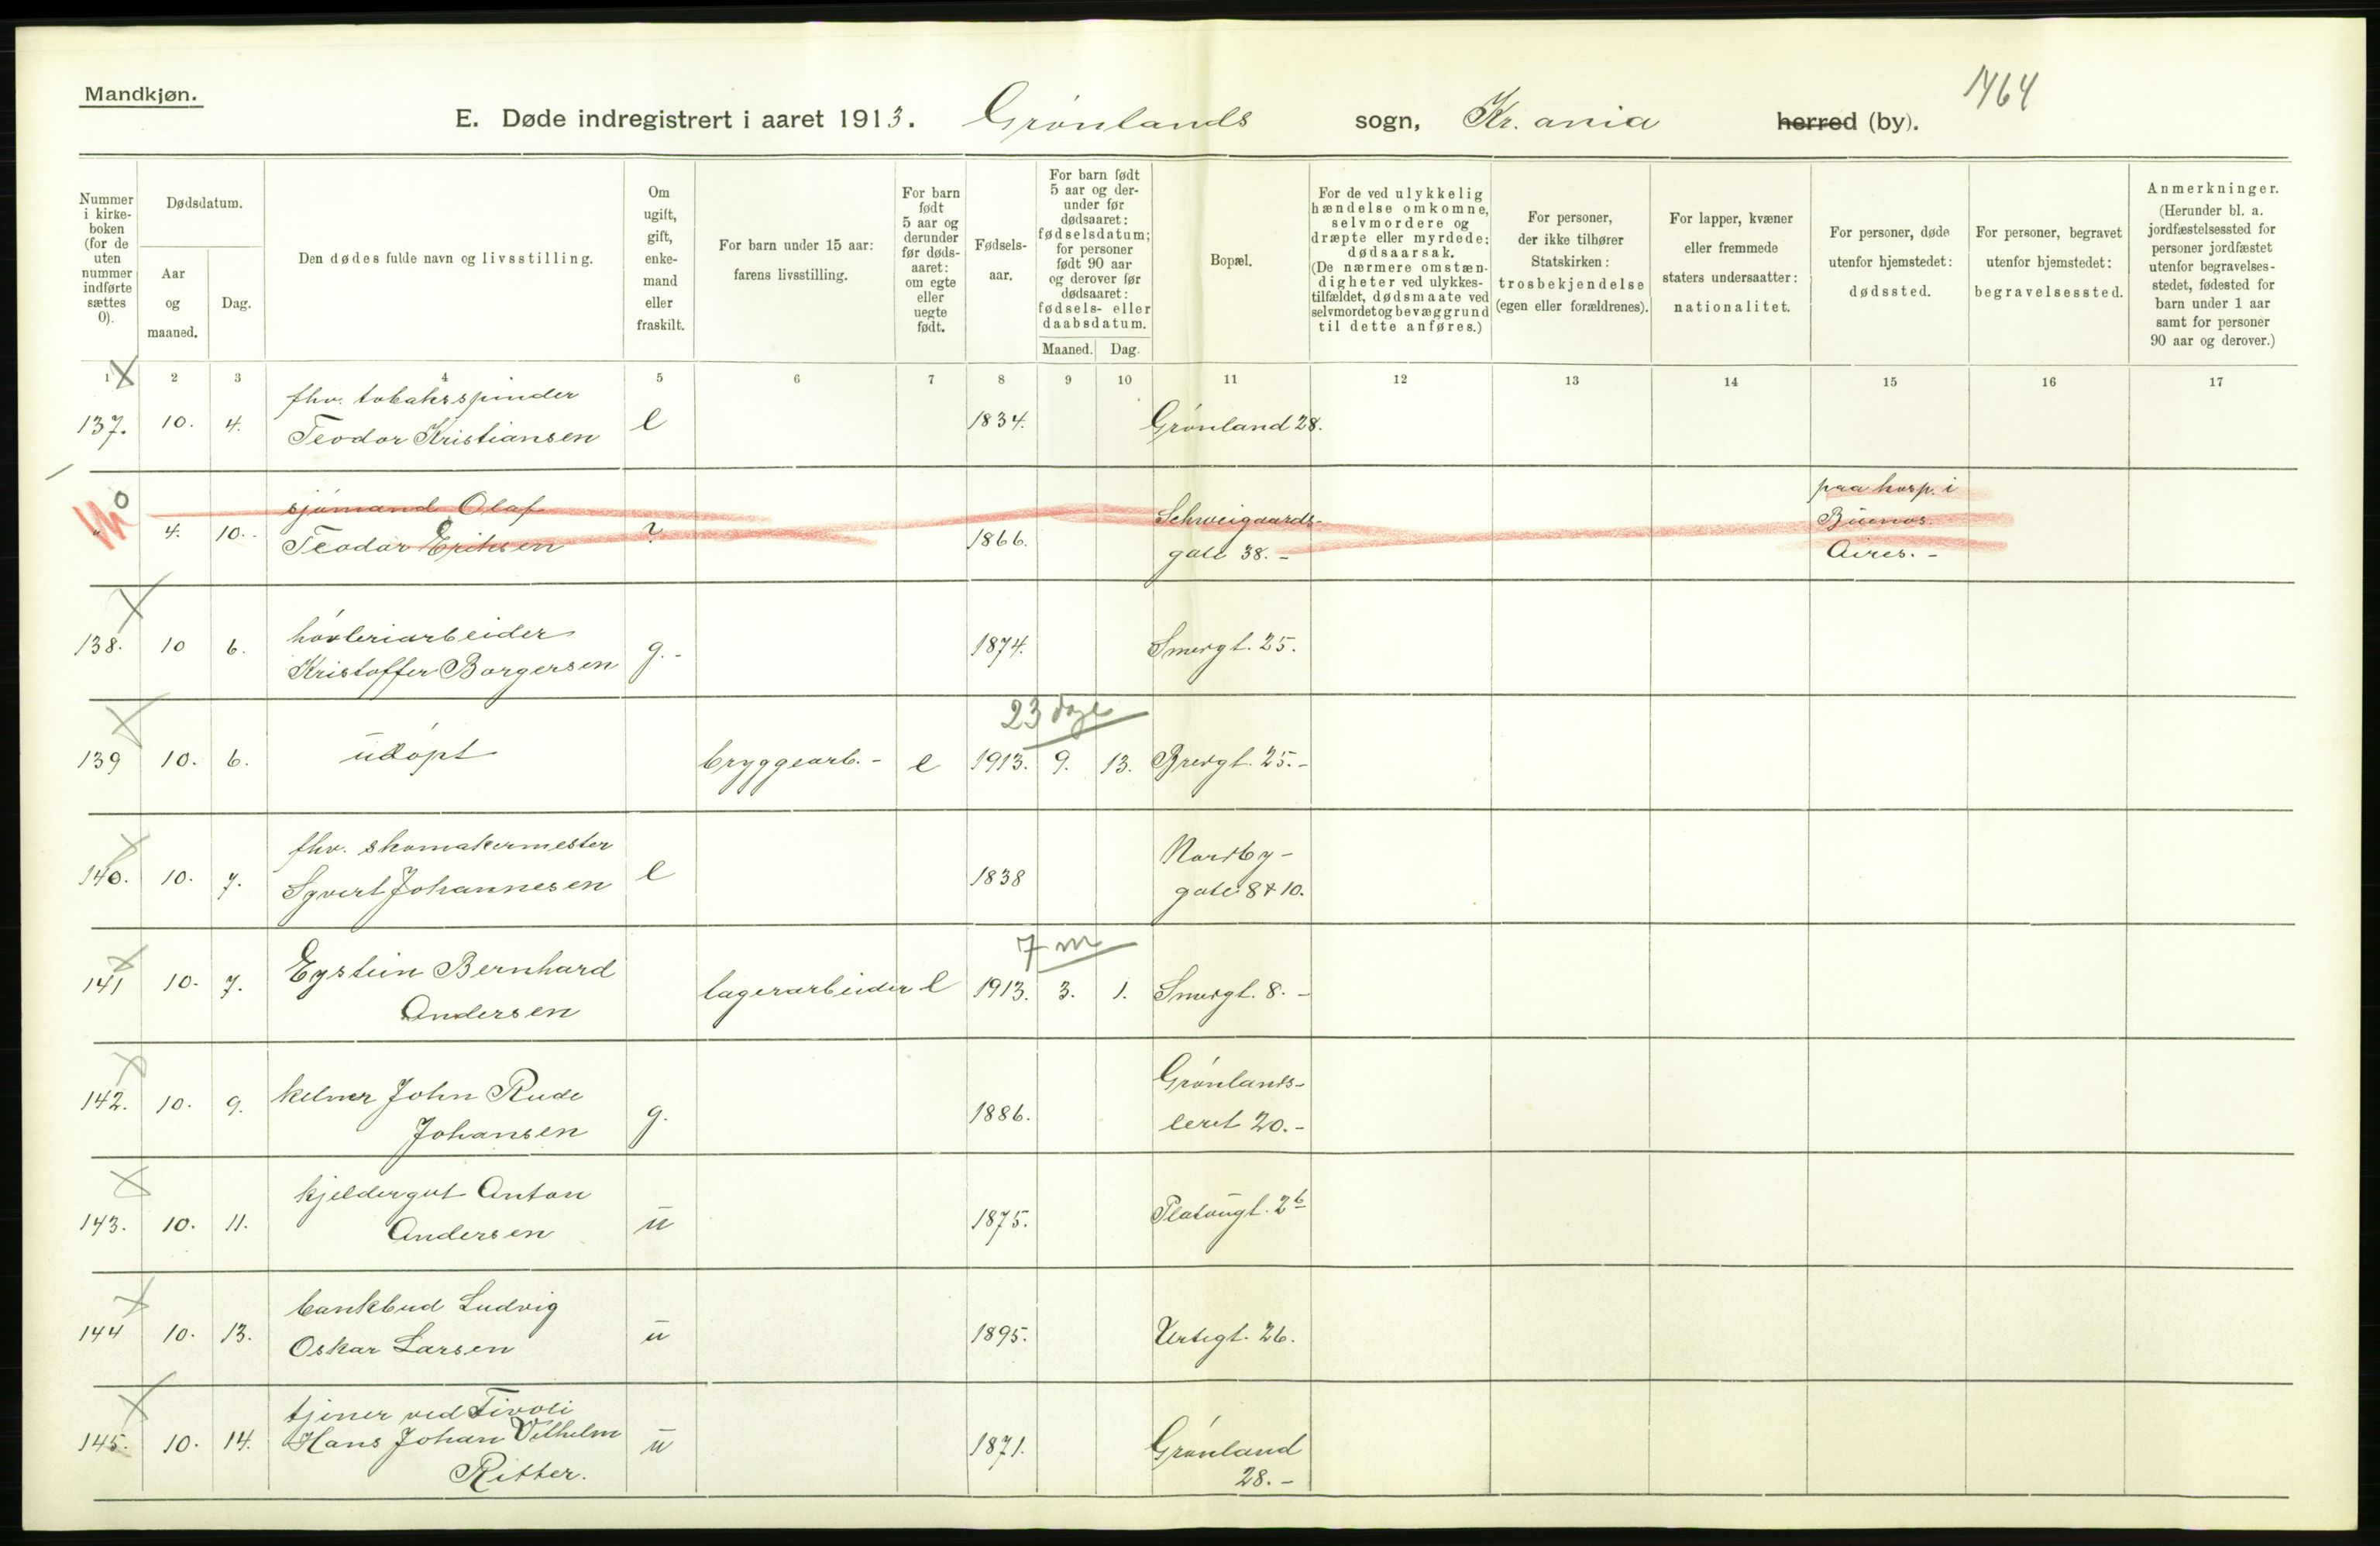 Mandkjøn.
1464
E. Døde indregistrert i aaret 1913. Grønlands sogn, Kr.ania herred (by).
Nummer i kirke-boken (for de uten nummer indførte sættes 0).
Dødsdatum.
Aar og maaned.
Dag.
Den dødes fulde navn og livsstilling.
Om ugift, gift, enke-mand eller fraskilt.
For barn under 15 aar: farens livsstilling.
For barn født 5 aar og derunder før døds-aaret: om egte eller uegte født.
Fødsels-aar.
For barn født 5 aar og der-under før dødsaaret: fødselsdatum; for personer født 90 aar og derover før dødsaaret: fødsels- eller daabsdatum.
Maaned. Dag.
Bopæl.
For de ved ulykkelig hændelse omkomne, selvmordere og dræpte eller myrdede: dødsaarsak. (De nærmere omstæn-digheter ved ulykkes-tilfældet, dødsmaate ved selvmordet og bevæggrund til dette anføres.)
For personer, der ikke tilhører Statskirken: trosbekjendelse (egen eller forældrenes).
For lapper, kvæner eller fremmede staters undersaatter: nationalitet.
For personer, døde utenfor hjemstedet: dødssted.
For personer, begravet utenfor hjemstedet: begravelsessted.
Anmerkninger. (Herunder bl. a. jordfæstelsessted for personer jordfæstet utenfor begravelses-stedet, fødested for barn under 1 aar samt for personer 90 aar og derover.)
1 2 3 4 5 6 7 8 9 10 11 12 13 14 15 16 17
fhv. tobaksspinder
137. 10. 4. Teodor Kristiansen e 1834. Grønland 28.
0 sjømand Olaf Schweigaards- paa hosp. i
" 4. 10. Teodor Eriksen ? 1866. gate 38. - Buenos Aires. -
høvleriarbeider
138. 10 6. Kristoffer Borgersen g. - 1874. Smedgt. 25.
23 dage
139 10. 6. udøpt bryggearb. - e 1913. 9. 13. Bredgt. 25. -
fhv. skomakermester Nordby-
140. 10. 7. Sgvert Johannesen e 1838 gate 8 & 10.
7 m
Eystein Bernhard
141 10. 7. Andersen lagerarbeider e 1913. 3. 1. Smedgt. 8. -
Grønlands-
142. 10. 9. kelner John Rude
Johansen g. 1886. leret 20. -
kjeldergut Anton
143. 10. 11. Andersen u 1875. Platougt. 2b
bankbud Ludvig
144 10. 13. Oskar Larsen u 1895. Urtegt. 26.
tjener ved Tivoli
145. 10. 14. Hans Johan Vilhelm u 1871. Grønland
Ritter. 28. -